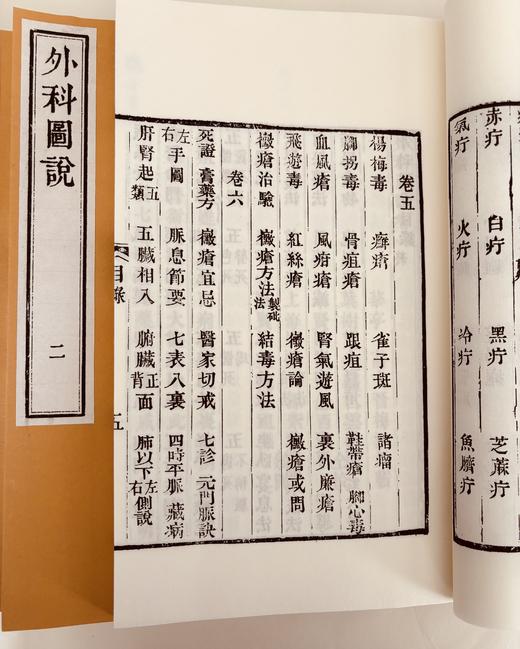 外科圖說
二
赤疔 白疔 黑疔 芝蔴疔
氣疔 火疔 冷疔 魚臍疔
卷五
楊梅毒 癬瘡 雀子斑 諸瘤
腳拐毒 骨疽瘡 跟疽 鞋帶瘡 腳心毒
血風瘡 風疳瘡 腎氣遊風 裏外廉瘡
飛遊毒 紅絲瘡 黴瘡論 黴瘡或問
黴瘡治驗 黴瘡方法 製砒法 結毒方法
卷六
死證 膏藥方 黴瘡宜忌 醫家切戒 七診 元門脈訣
左右手圖 脈息節要 七表八裏 四時平脈 藏病
肝腎起五類 五臟相入 腑臟正背面 肺以下左右側說
目錄 五